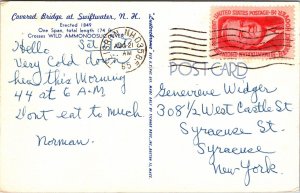 Covered Bridge at Swiftwater, N. H.
Erected 1849
One Span, total length 174
Crosses WILD AMMONOOSUC RIVER
Hello Sat
Very Cold down
here this Morning
44 at 6 A.M
Dont eat to much
Norman.
N.H.
AM
UNITED STATES POSTAGE
POST CARD
Genevieve Widger
308½ West Castle St
Syracuse St.
Syracuse
New York.